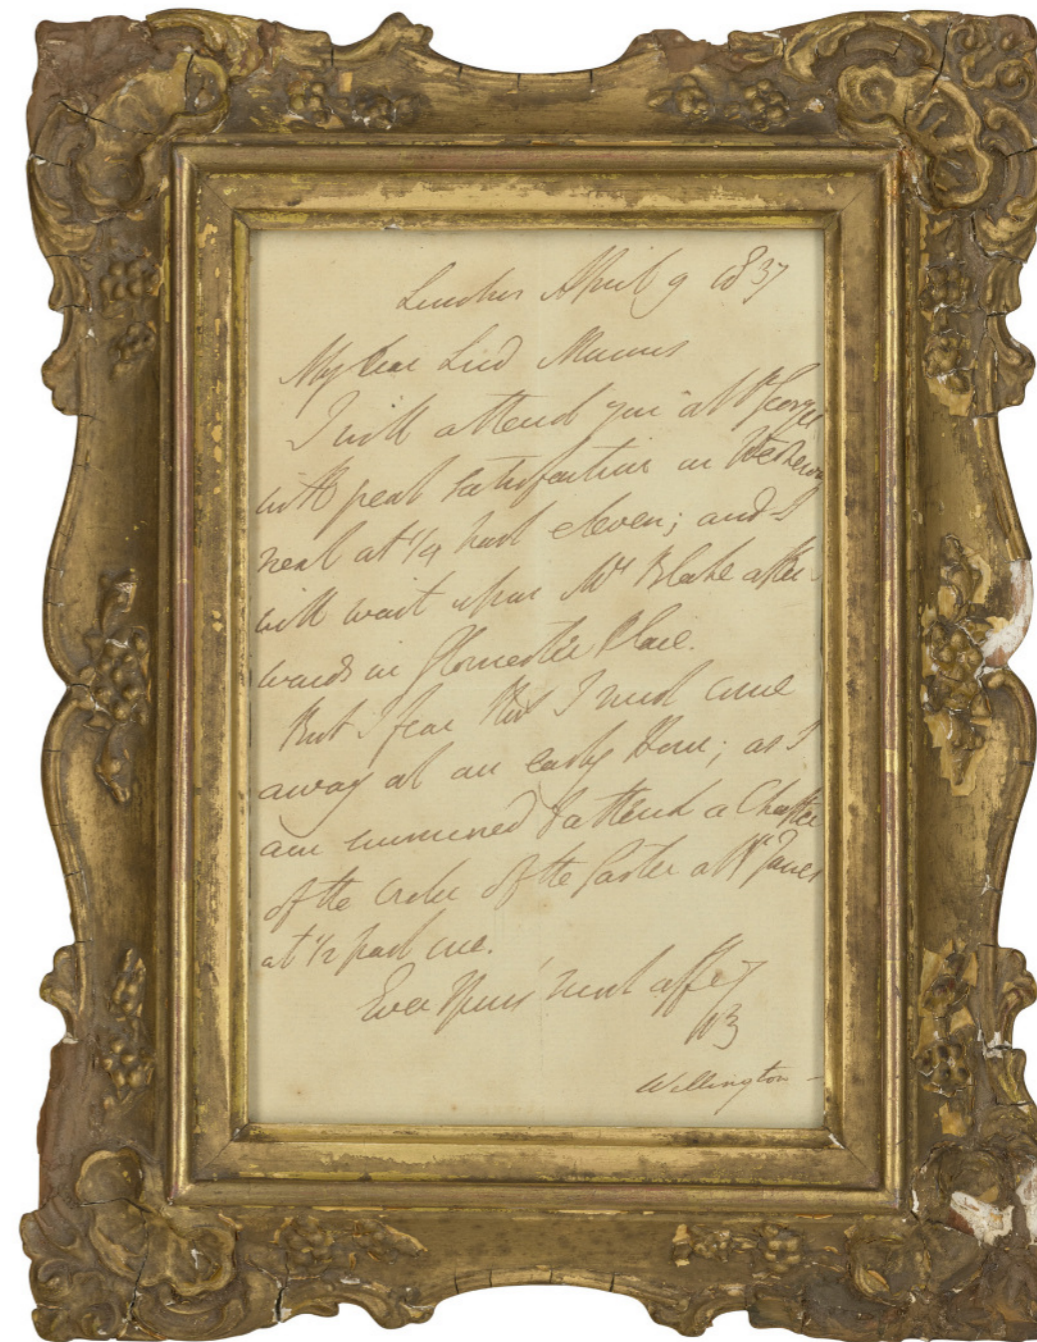 London April 9 1837
My dear Lord
I will attend you at St George's
with great satisfaction on Wednesday
next at 1/4 past eleven; and I
will wait upon Mrs Blake after
wards in Gloucester Place.
But I fear that I must come
away at an early Hour; as I
am summoned to attend a Chapter
of the order of the Garter at St James's
at 1/2 past one.
Ever Yours most affly
Wellington